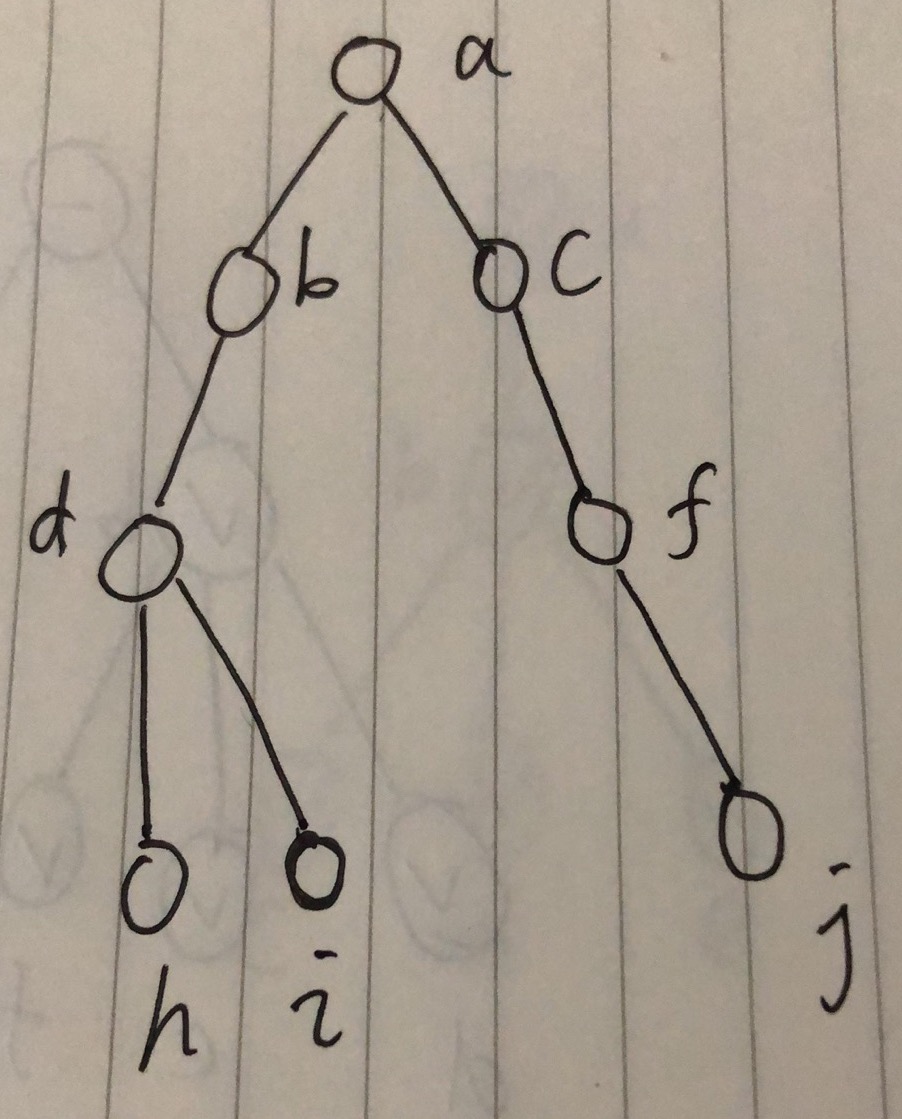 a
b c
d f
h i j